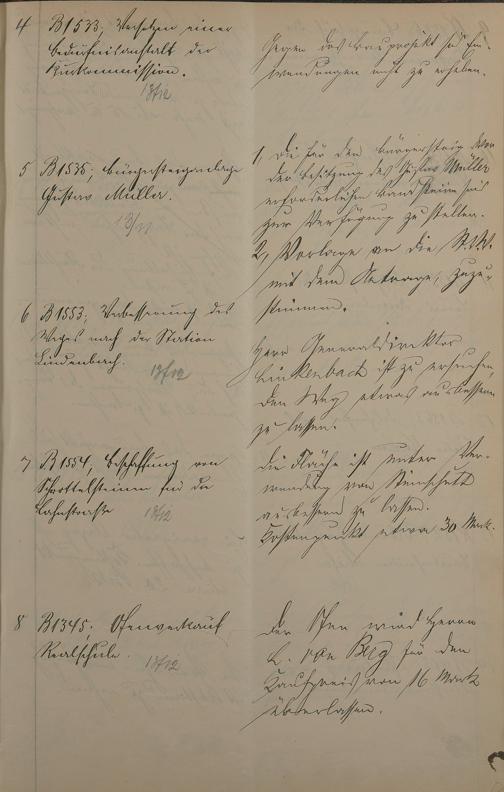 4 B 1533, Versetzen einer
Bedürfnisanstalt der
Kurkommission.
13/12
Gegen das Bauprojekt sind Ein-
wendungen nicht zu erheben.
5 B 1535; Bürgersteiganlage
Gustav Müller.
13/11
1, Die für den Bürgersteig vor
der Besitzung des Gustav Müller
erforderlichen Randsteine sind
zur Verfügung zu stellen.
2, Vorlage an die St.V.V.
mit dem Antrage, zuzu-
stimmen.
6 B 1553; Verbesserung des
Weges nach der Station
Lindenbach.
13/12
Herr Generaldirektor
Linkenbach ist zu ersuchen,
den Weg etwas ausbessern
zu lassen.
7 B 1554, Beschaffung von
Schottelsteinen für die
Lahnstraße
13/12
Die Fläche ist unter Ver-
wendung von Steinschutt
ausbessern zu lassen.
Kostenpunkt etwa 30 Mark.
8 B 1345; Ofenverkauf
Realschule.
13/12
Der Ofen wird Herrn
von Berg für den
Kaufpreis von 16 Mark
überlassen.